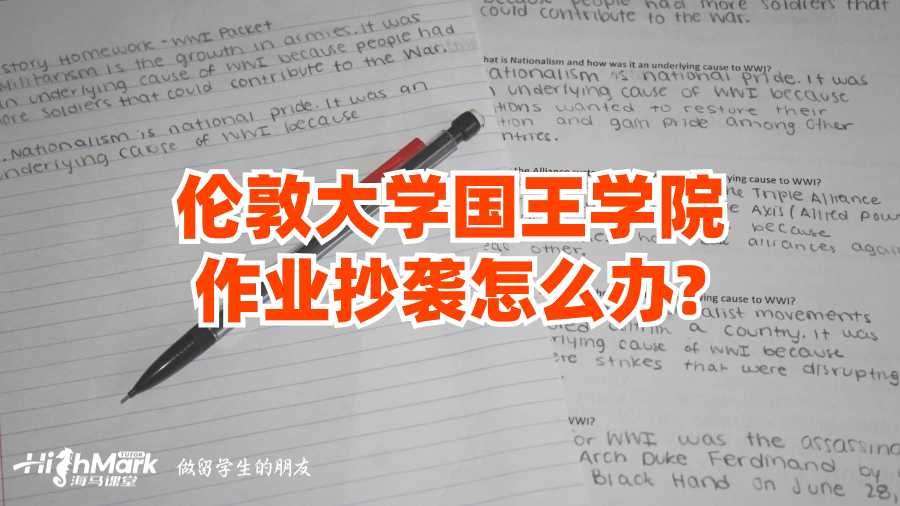 story Homework - WWI Packet
Militarism is the growth in armies. It was
an underlying cause of WWI because people had
more soldiers that could contribute to the War.
. Nationalism is national pride. It was an
underlying cause of WWI because
because people had more soldiers that
could contribute to the War.
hat is Nationalism and how was it an underlying cause to WWI?
ationalism is national pride. It was
underlying cause of WWI because
tions wanted to restore their
tion and gain pride among other
ntries.
the Alliance
ying cause to WWI?
the Triple Alliance
Axis (Allied Pow
because
alliances again
other.
伦敦大学国王学院
作业抄袭怎么办?
ying cause to WWI?
alist movements
within a country. It was
rlying cause of WWI because
ere strikes that were disrupting
WWI?
or WWI was the assassina
Arch Duke Ferdinand by
Black Hand on June 28,
HighMark
TUTOR
海马课堂
做留学生的朋友